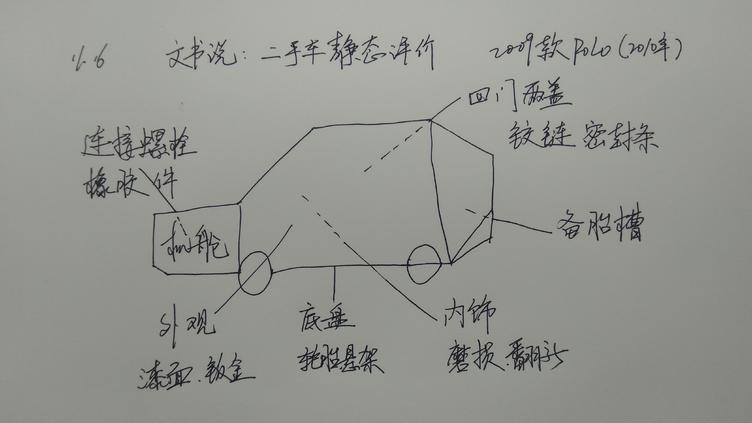 1.6 文书说：二手车静态评价 2009款POLO(2010年)
四门两盖
铰链 密封条
连接螺栓
橡胶件
机舱
备胎槽
外观
漆面.钣金
底盘
轮胎悬架
内饰
磨损.翻新